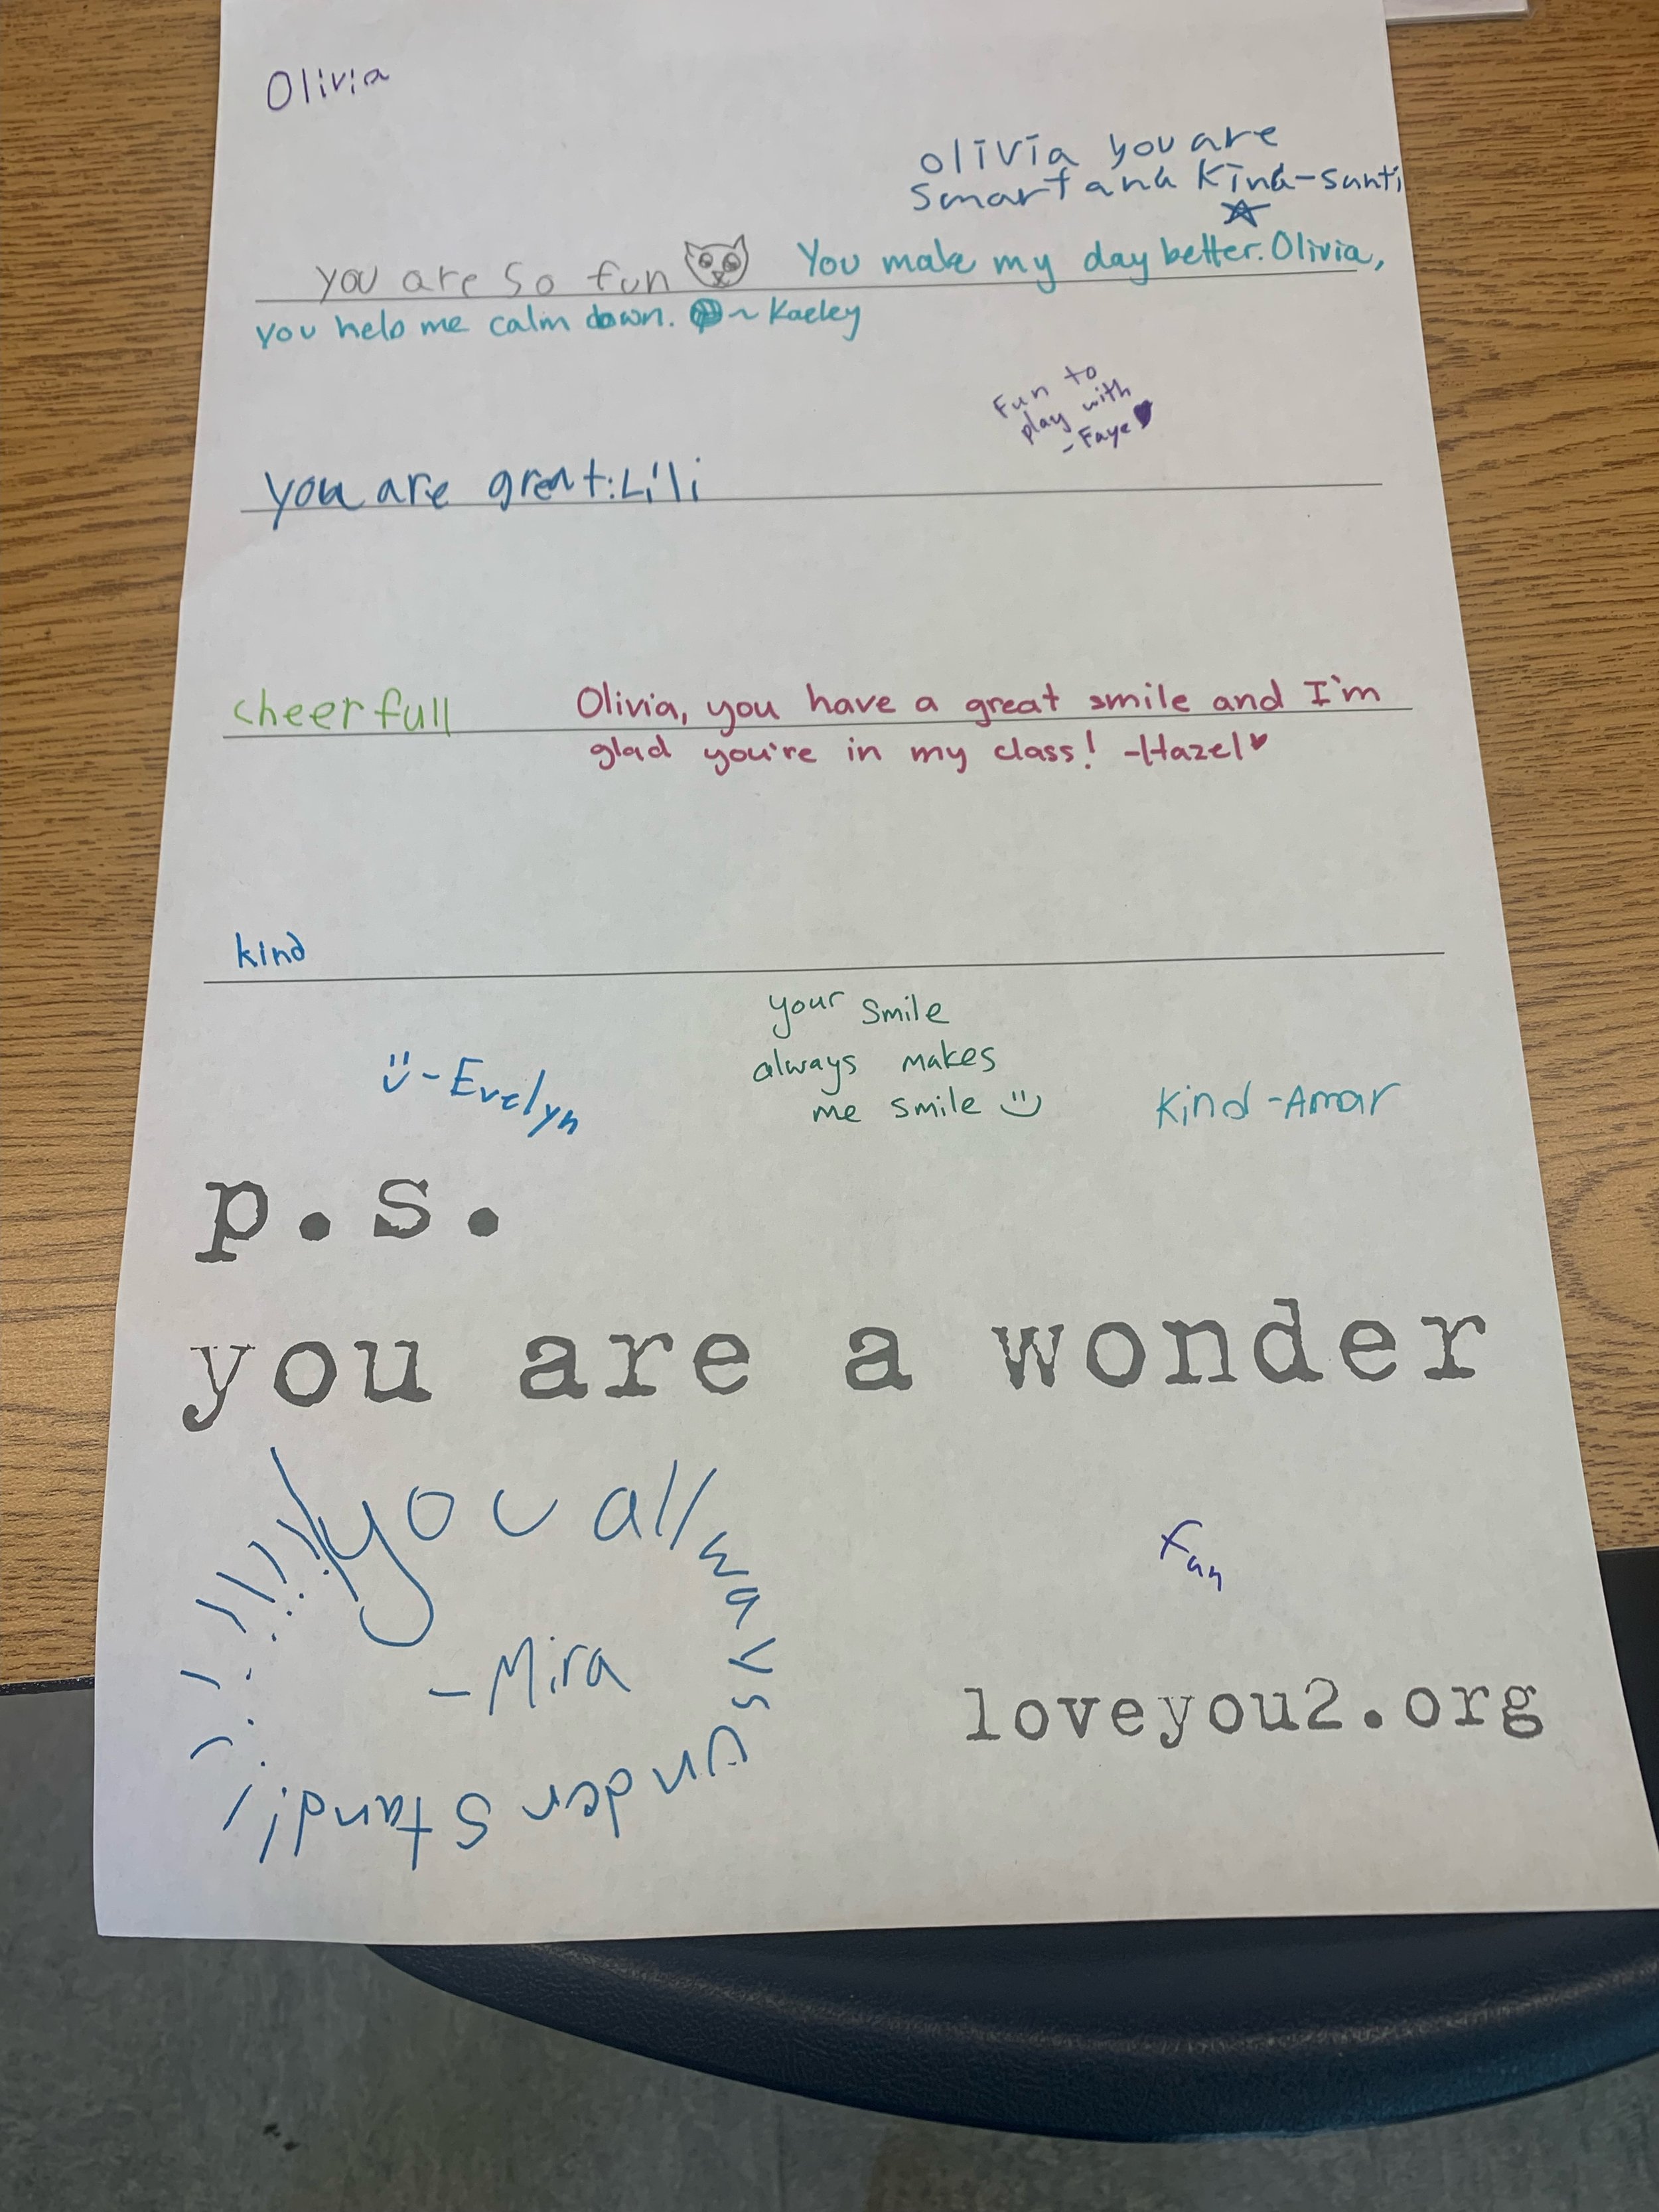 Olivia
olivia you are
smart and kind-santi
you are so fun
You make my day better. Olivia,
you help me calm down. ~ Kaeley
Fun to
play with
- Faye
you are great:Lili
cheerfull
Olivia, you have a great smile and I'm
glad you're in my class! -Hazel
kind
-Evelyn
your smile
always makes
me smile
Kind-Amar
p.s.
you are a wonder
you allways understand!!!!!!!!!
-Mira
fun
loveyou2.org